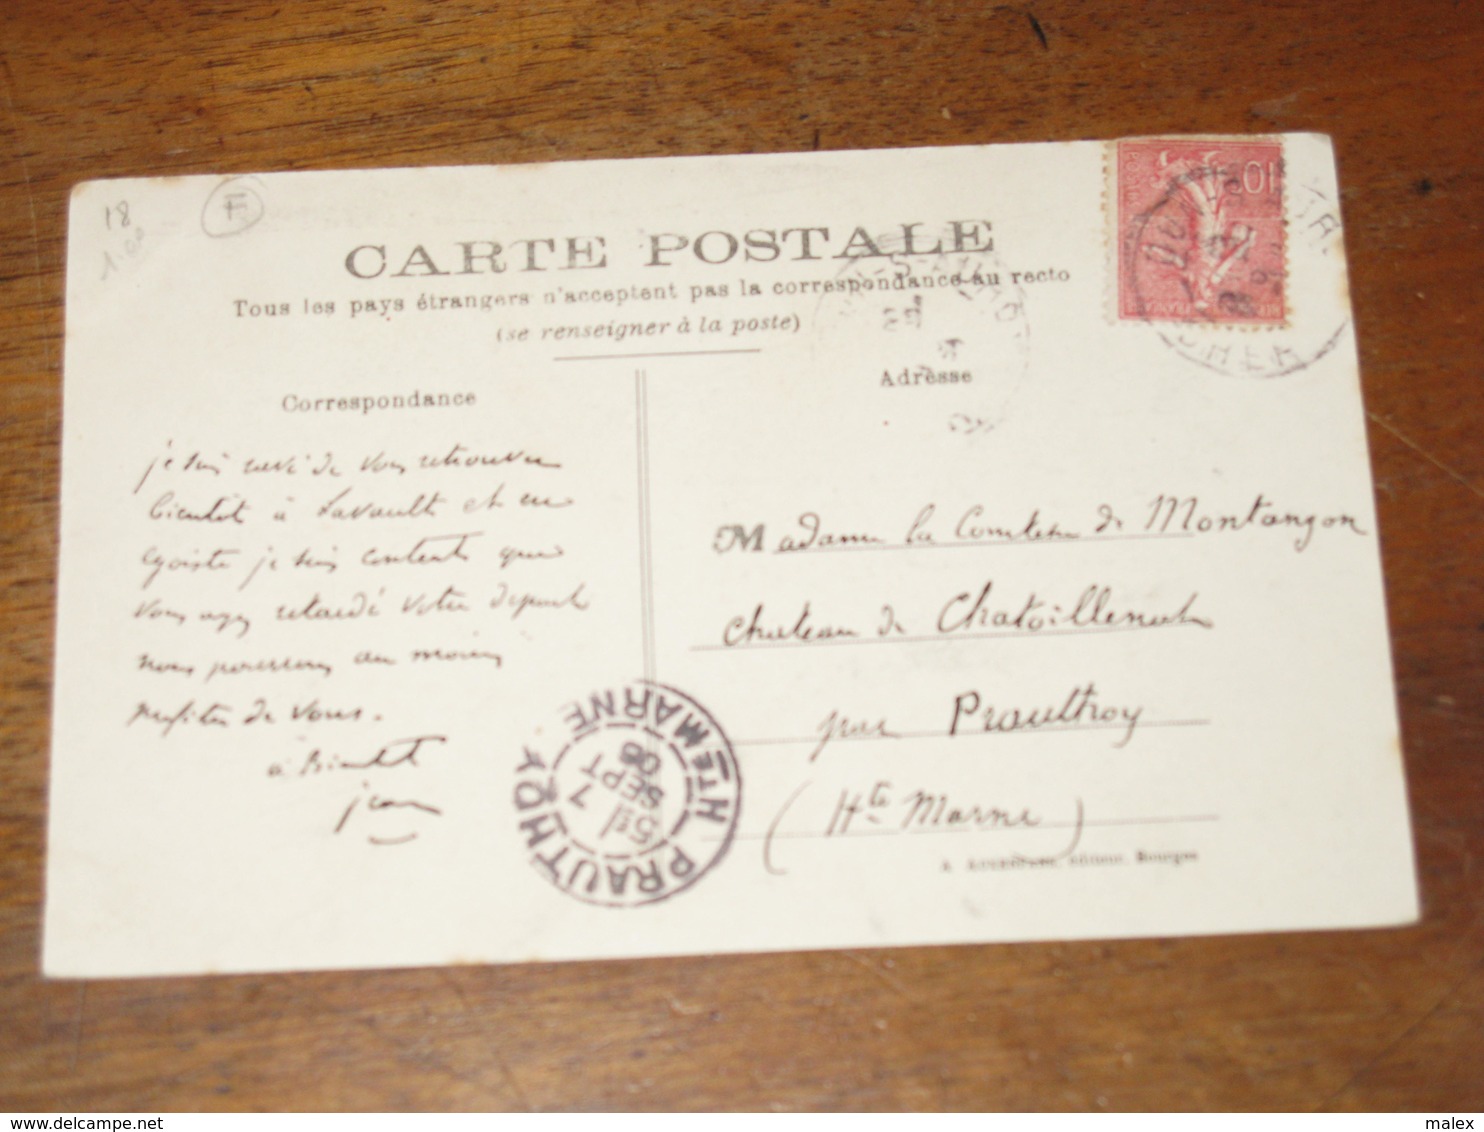 18
F
CARTE POSTALE
Tous les pays étrangers n'acceptent pas la correspondance au recto
(se renseigner à la poste)
Correspondance
Adresse
10
je suis ravi de vous retrouver
bientôt à Lavault et en
egoiste je suis contents que
vous ayez retardé votre depart
nous pourrons au moins
profiter de vous.
à Bientôt
jean
Madame la Comtesse de Montangon
chateau de Chatoillenot
par Prauthoy
(Hte Marne)
PRAUTHOY
Hte MARNE
7
SEPT
06
A. AUXENFANS, éditeur, Bourges
delcampe.net
malex